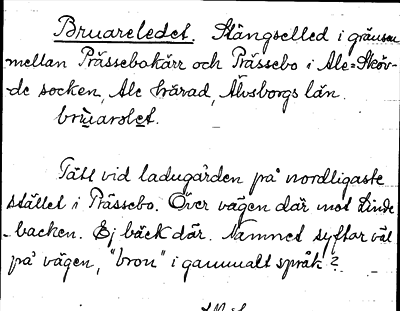 Bruareledet. Stängselled i gränsen
mellan Prässebokärr och Prässebo i Ale=Sköv-
de socken, Ale härad, Älvsborgs län.
brùarolet.
Tätt vid ladugården på nordligaste
stället i Prässebo. Över vägen där mot Linde
backen. Ej bäck där. Namnet syftar väl
på vägen, "bron" i gammalt språk?